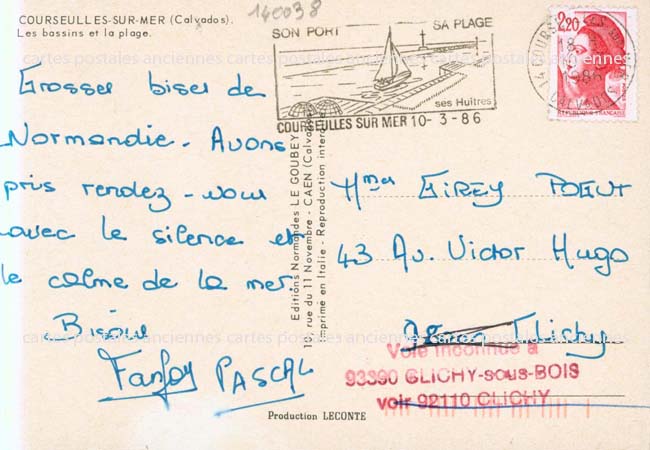 COURSEULLES-SUR-MER (Calvados).
Les bassins et la plage.
140038
SON PORT
SA PLAGE
ses Huîtres
COURSEULLES SUR MER 10-3-86
2,20
REPUBLIQUE FRANÇAISE
1986
CALVADOS
cartes postales anciennes cartes postales anciennes cartes postales anciennes
Grosses bises de
Normandie. Avons
pris rendez-vous
avec le silence et
le calme de la mer.
Bisous
PASCAL
Editions Normandes LE GOUBEY
rue du 11 Novembre - CAEN (Calvados)
Imprimé en Italie - Reproduction interdite
Mmes GIREY
43 Av. Victor Hugo
Clichy
cartes postales anciennes cartes postales anciennes cartes postales anciennes
Voie inconnue à
93390 CLICHY-sous-BOIS
voir 92110 CLICHY
Production LECONTE